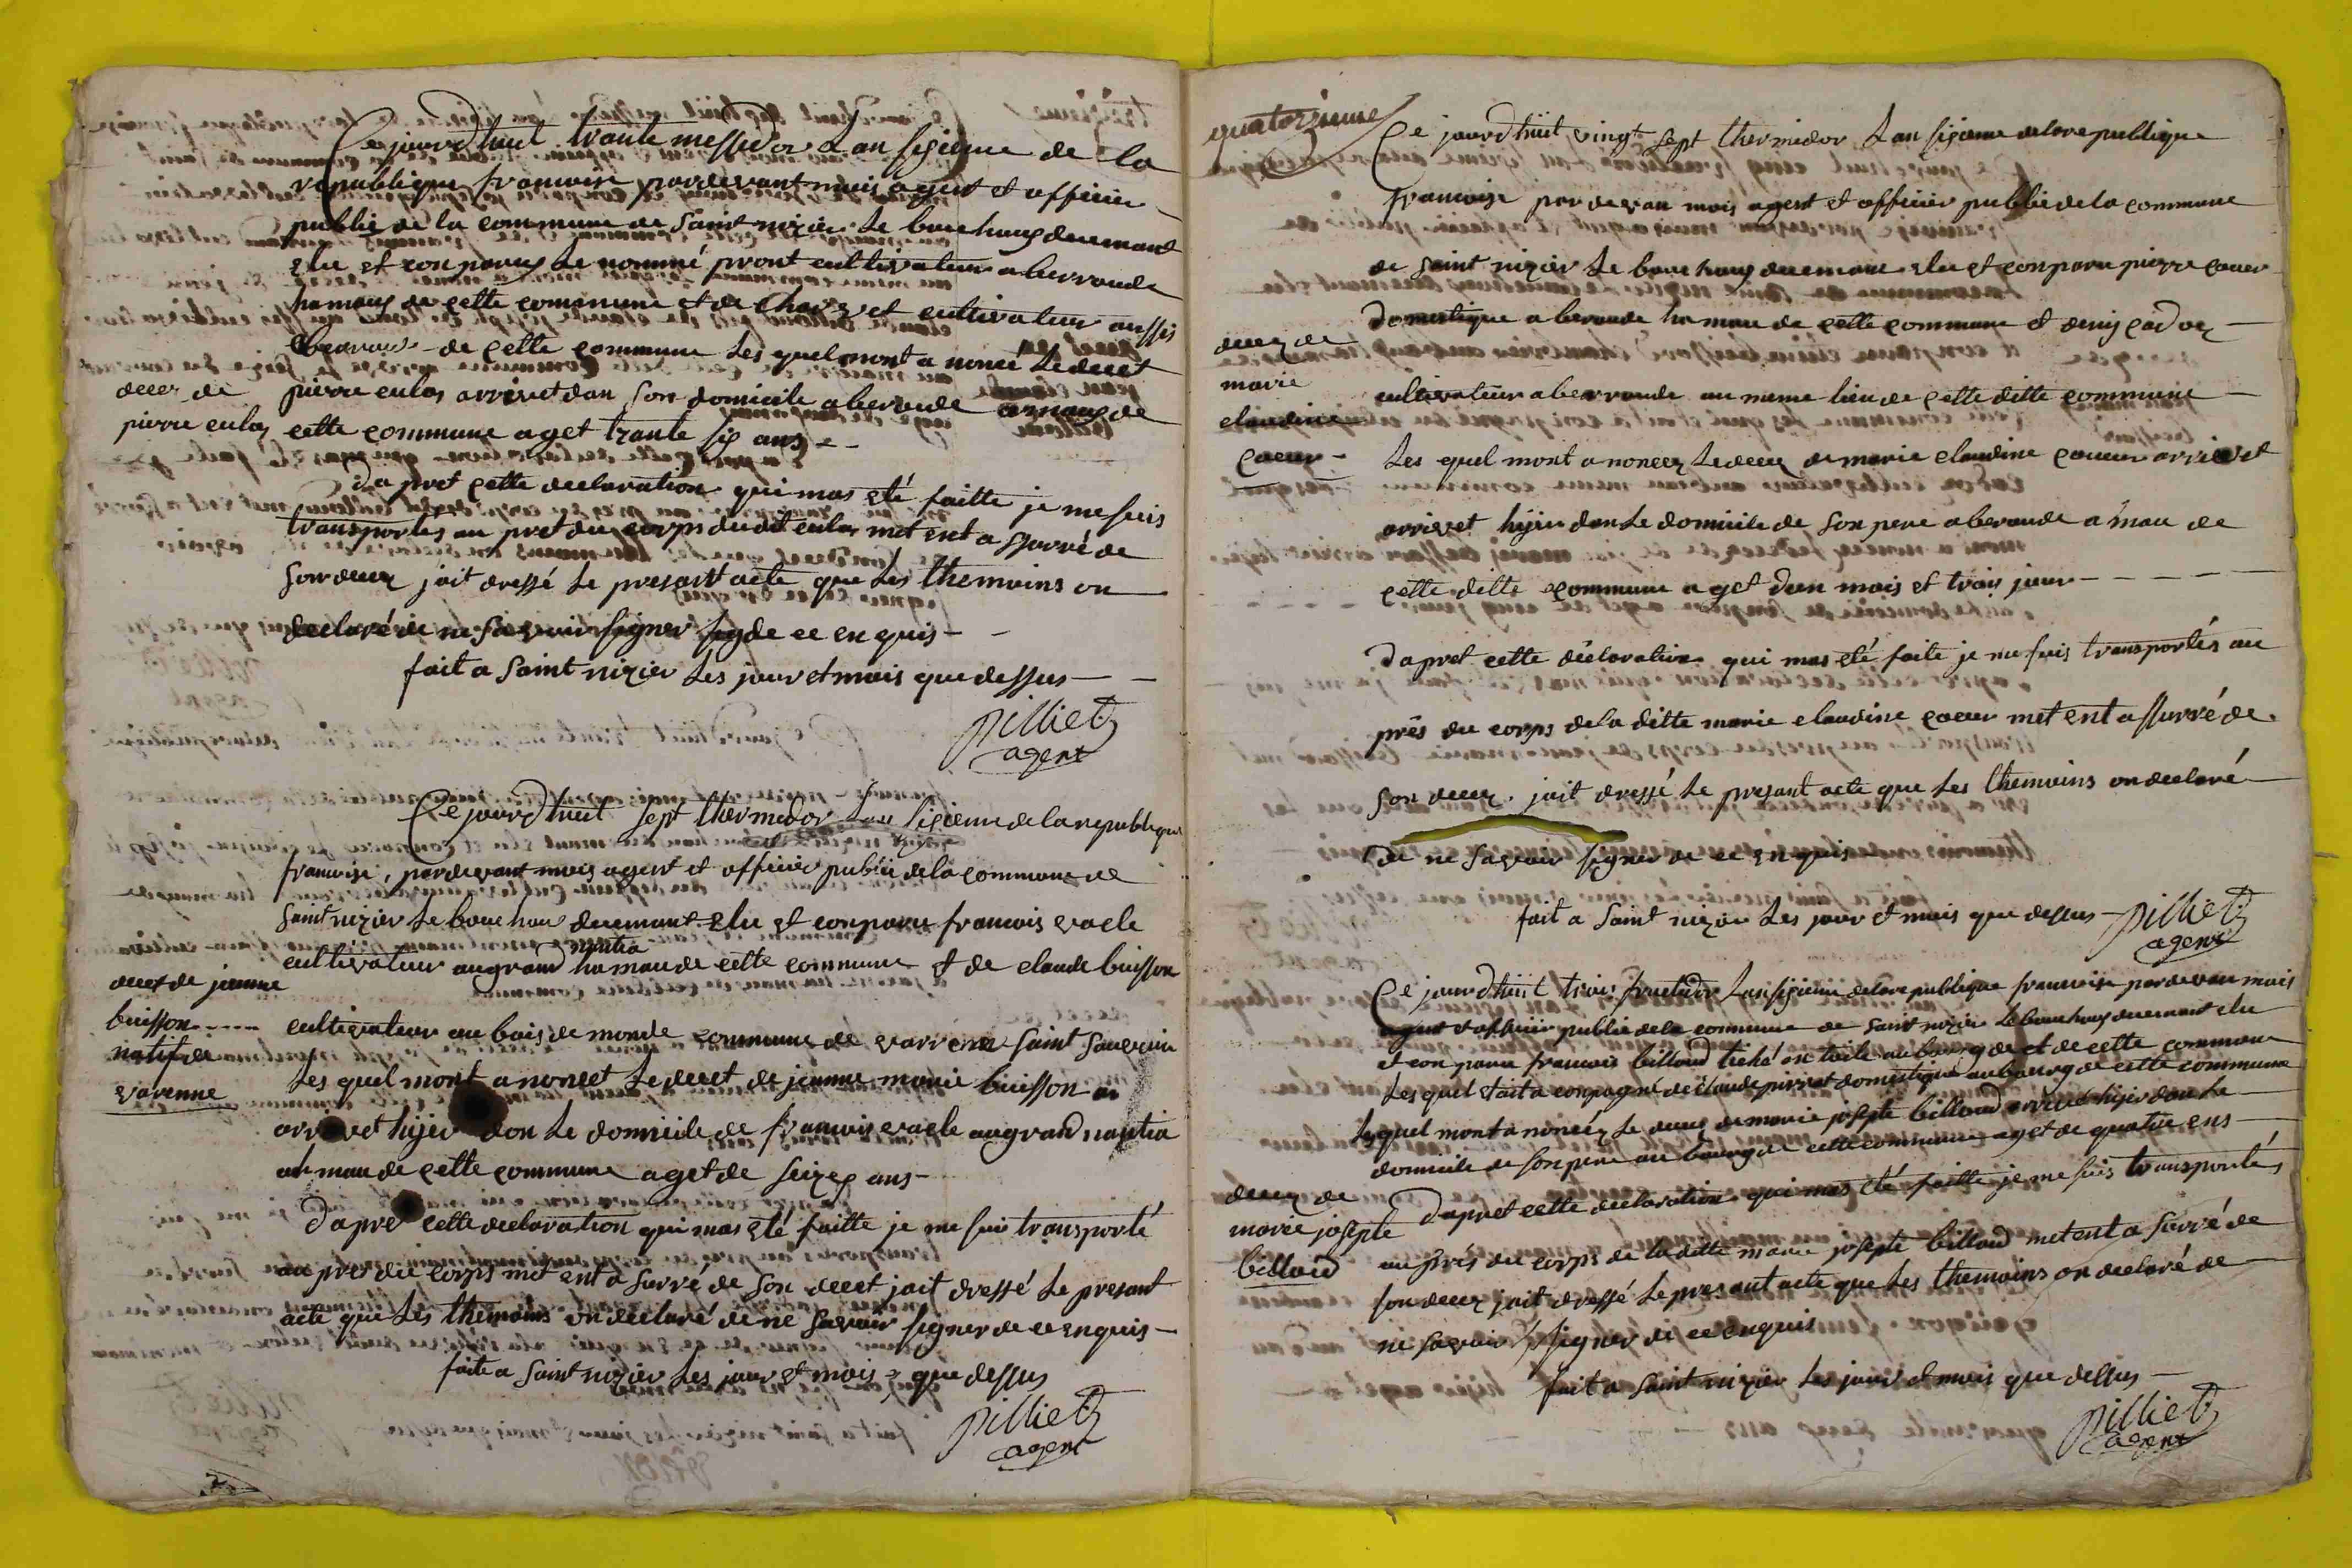 Ce jourd'huit trante messidor L an sixieme de la
republique francoise pardevant mois agent et officier
public de la commune de Saint nizier Le bouchoux duemant
elu et conparus Le nommé pront cultivateur a berronde
hamaux de cette commune et de cultivateur aussis
de cette commune Les quel mont a noncé Le decet
pierre culas arrivet dan son domicile a beronde amaux de
cette commune aget trante six ans
decez de
pierre culas
D'a pret cette declaration qui mas eté faitte je me suis
transportés au pret du corps dudit culas met ent a ssurré de
son decez jait dressé Le presant acte que Les themoins on
declaré de ne savoir signer de ce enquis
fait a Saint nizier Les jour et mois que dessus
pilliet
agent
Ce jourd'huit sept thermidor Lan sixieme de la republique
francoise, pardevant mois agent et officier public de la commune de
Saint nizier Le bouchou duemant elu et conparu francois vacle
cultivateur au grand nantia hamau de cette commune et de claude buisson
decet de jeanne
buisson
natif de
varenne
cultivateur au bois de monde commune de varenne Saint Sauveur
Les quel mont a noncet Le decet de jeanne marie buisson
arrivet hijer dan Le domicile de francois vacle au grand nantia
ahmau de cette commune aget de seizes ans
D'apret cette declaration qui mas eté faitte je me suis transporté
au pres du corps met ent a surré de son decet jait dressé Le presant
acte que Les themoins on declaré de ne savoir signer de ce enquis
faite a Saint nizier Les jour et mois que dessus
pilliet
agent
quatorzieme
Ce jourd'huit vingt sept thermidor L an sixieme de la republique
francoise par devan mois agent et officier public de la commune
de Saint nizier Le bouchoux duemant elu et conparu pierre coeur
domestique a beronde hamau de cette commune et denis cadoz
decez de
marie
claudine
coeur
cultivateur a berronde au meme lieu de cette ditte commune
Les quel mont a noncez Le decez de marie claudine coeur arrivet
arrivet hijer dan Le domicile de son pere a beronde a mau de
cette ditte commune aget dun mois et trois jour
D'apret cette déclaration qui mas eté faite je me suis transportés au
prés du corps de la ditte marie claudine coeur met ent assurré de
son decez. jait dressé Le presant acte que Les themoins on declaré
de ne savoir signer de ce enquis
fait a Saint nizier Les jour et mois que dessus
pilliet
agent
Ce jourd'huit trois fructidor Lan sixieme de la republique francoise pardevan mois
agent et officier public de la commune de Saint nizier Le bouchoux duemant elu
et conparu francois billoud tiché en toile au bourg de et de cette commune
Lesquel etait a conpagné de claude pirret domestique au bourg de cette commune
Lequel mont a noncez Le decez de marie josepte billoud arrivé hijer dan Le
domicile de son pere au bourg de cette commune aget de quatre ens
decez de
marie josepte
billoud
D'apret cette declaration qui mas eté faitte je me suis transportés
au prés du corps de la ditte marie josepte billoud met ent a surré de
son decez jait dressé Le presant acte que Les themoins on declaré de
ne savoir signer de ce enquis
fait a Saint nizier Les jour et mois que dessus
pilliet
agent